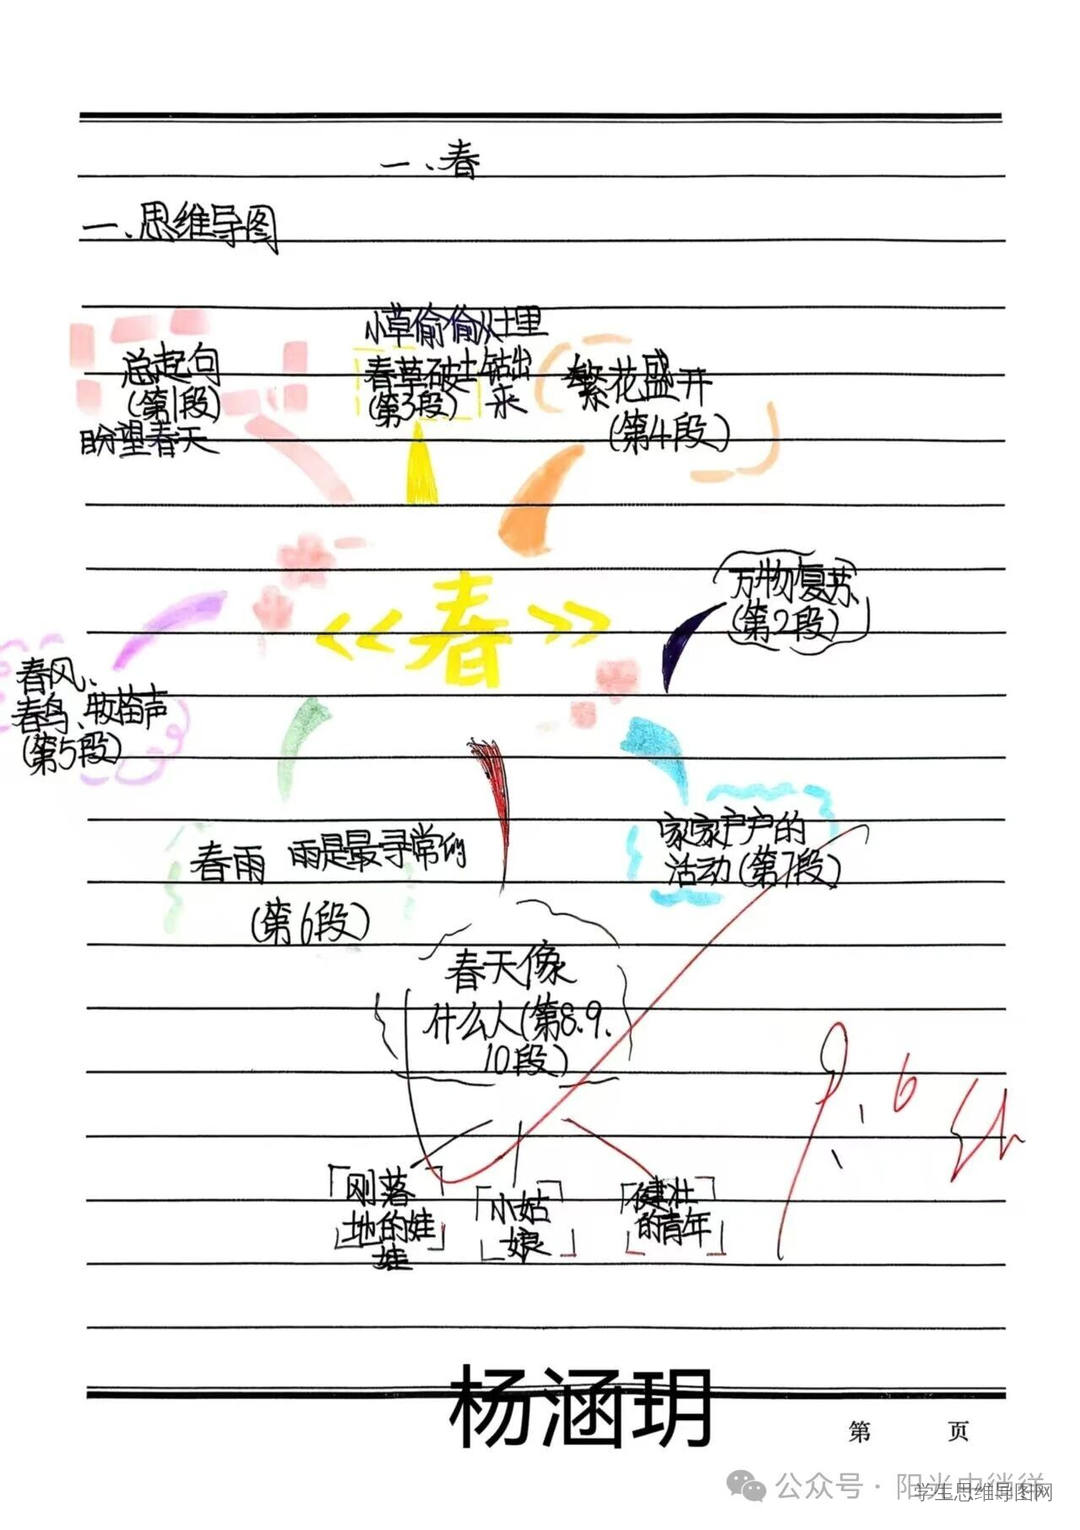 一、春
一、思维导图
总起句
(第1段)
盼望春天
小草偷偷从土里
钻出
来
春草破土
(第3段)
繁花盛开
(第4段)
万物复苏
(第2段)
《春》
春风、
春鸟、牧笛声
(第5段)
春雨 雨是最寻常的
(第6段)
家家户户的
活动(第7段)
春天像
什么人(第8.9.
10段)
刚落
地的娃
娃
小姑
娘
健壮
的青年
杨涵玥
第 页
公众号 · 阳光中徜徉
学生思维导图网